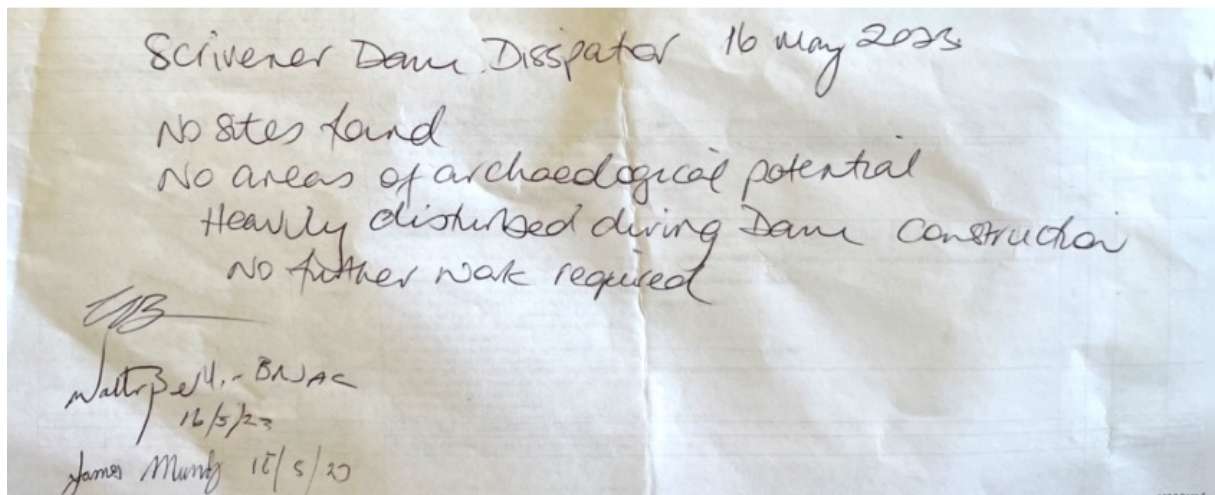 Scrivener Dam Disspator 16 May 2023
No sites found
No areas of archaeological potential
Heavily disturbed during Dam construction
No further work required
Walter Bell - BNAC
16/5/23
James Mundy 16/5/23